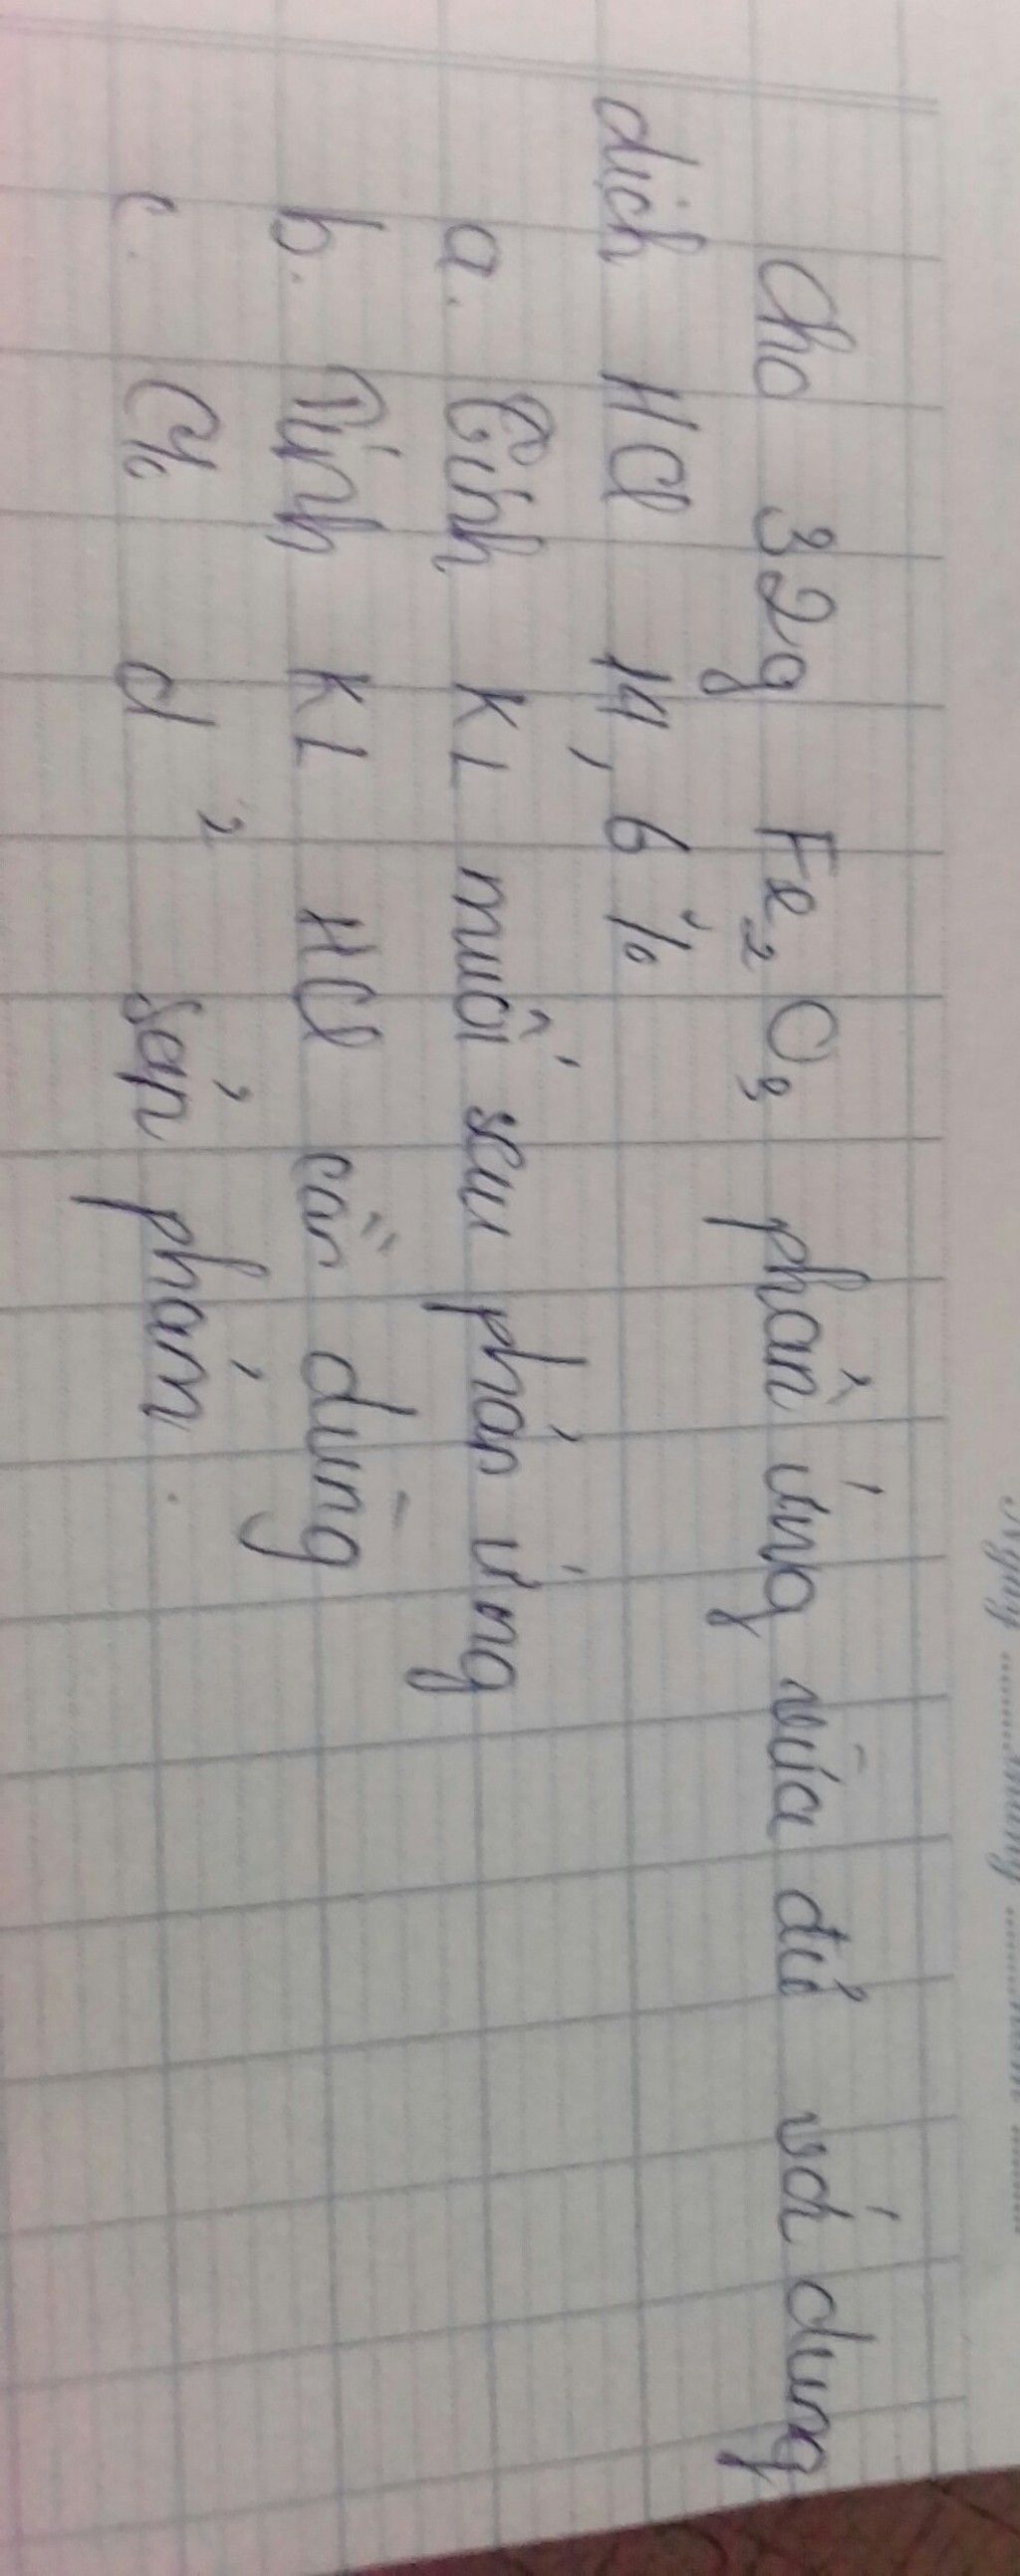 Ngày ........tháng ........năm ........
Cho 32g Fe₂O₃ phản ứng vừa đủ với dung
dịch HCl 14,6%
a. Tính KL muối sau phản ứng
b. Tính KL HCl cần dùng
c. C% d² sản phẩm.